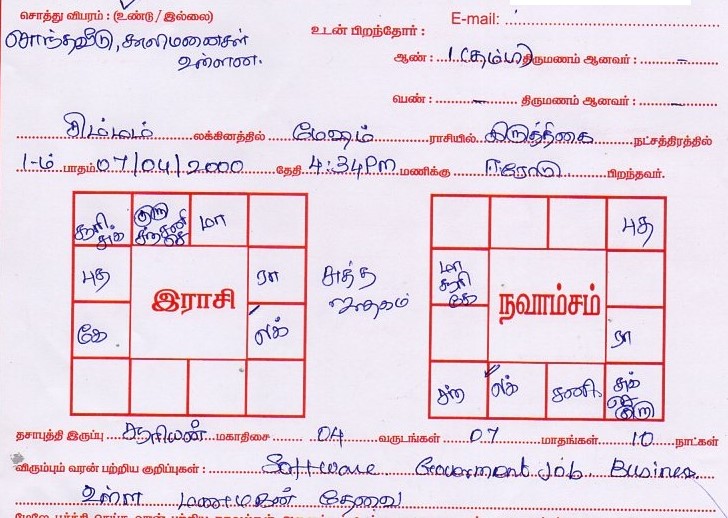 சொத்து விபரம் : (உண்டு / இல்லை)
சொந்தவீடு, காலிமனைகள்
உள்ளன.
E-mail:
உடன் பிறந்தோர் :
ஆண் : 1 (தம்பி) திருமணம் ஆனவர் : -
பெண் : - திருமணம் ஆனவர் : -
சிம்மம் லக்கினத்தில் மேஷம் ராசியில் கிருத்திகை நட்சத்திரத்தில்
1-ம் பாதம் 07/04/2000 தேதி 4:34PM மணிக்கு ஈரோடு பிறந்தவர்.
சூரி சுக்
குரு சந் சனி செ
மா
புத
இராசி
ரா
கே
லக்
சுத்த
ஜாதகம்
புத
மா சூரி கே
நவாம்சம்
ரா
சந்
லக்
சனி
சுக் செ குரு
தசாபுத்தி இருப்பு சூரியன் மகாதிசை 04 வருடங்கள் 07 மாதங்கள் 10 நாட்கள்
விரும்பும் வரன் பற்றிய குறிப்புகள் : Software Government Job, Business
உள்ள மணமகன் தேவை